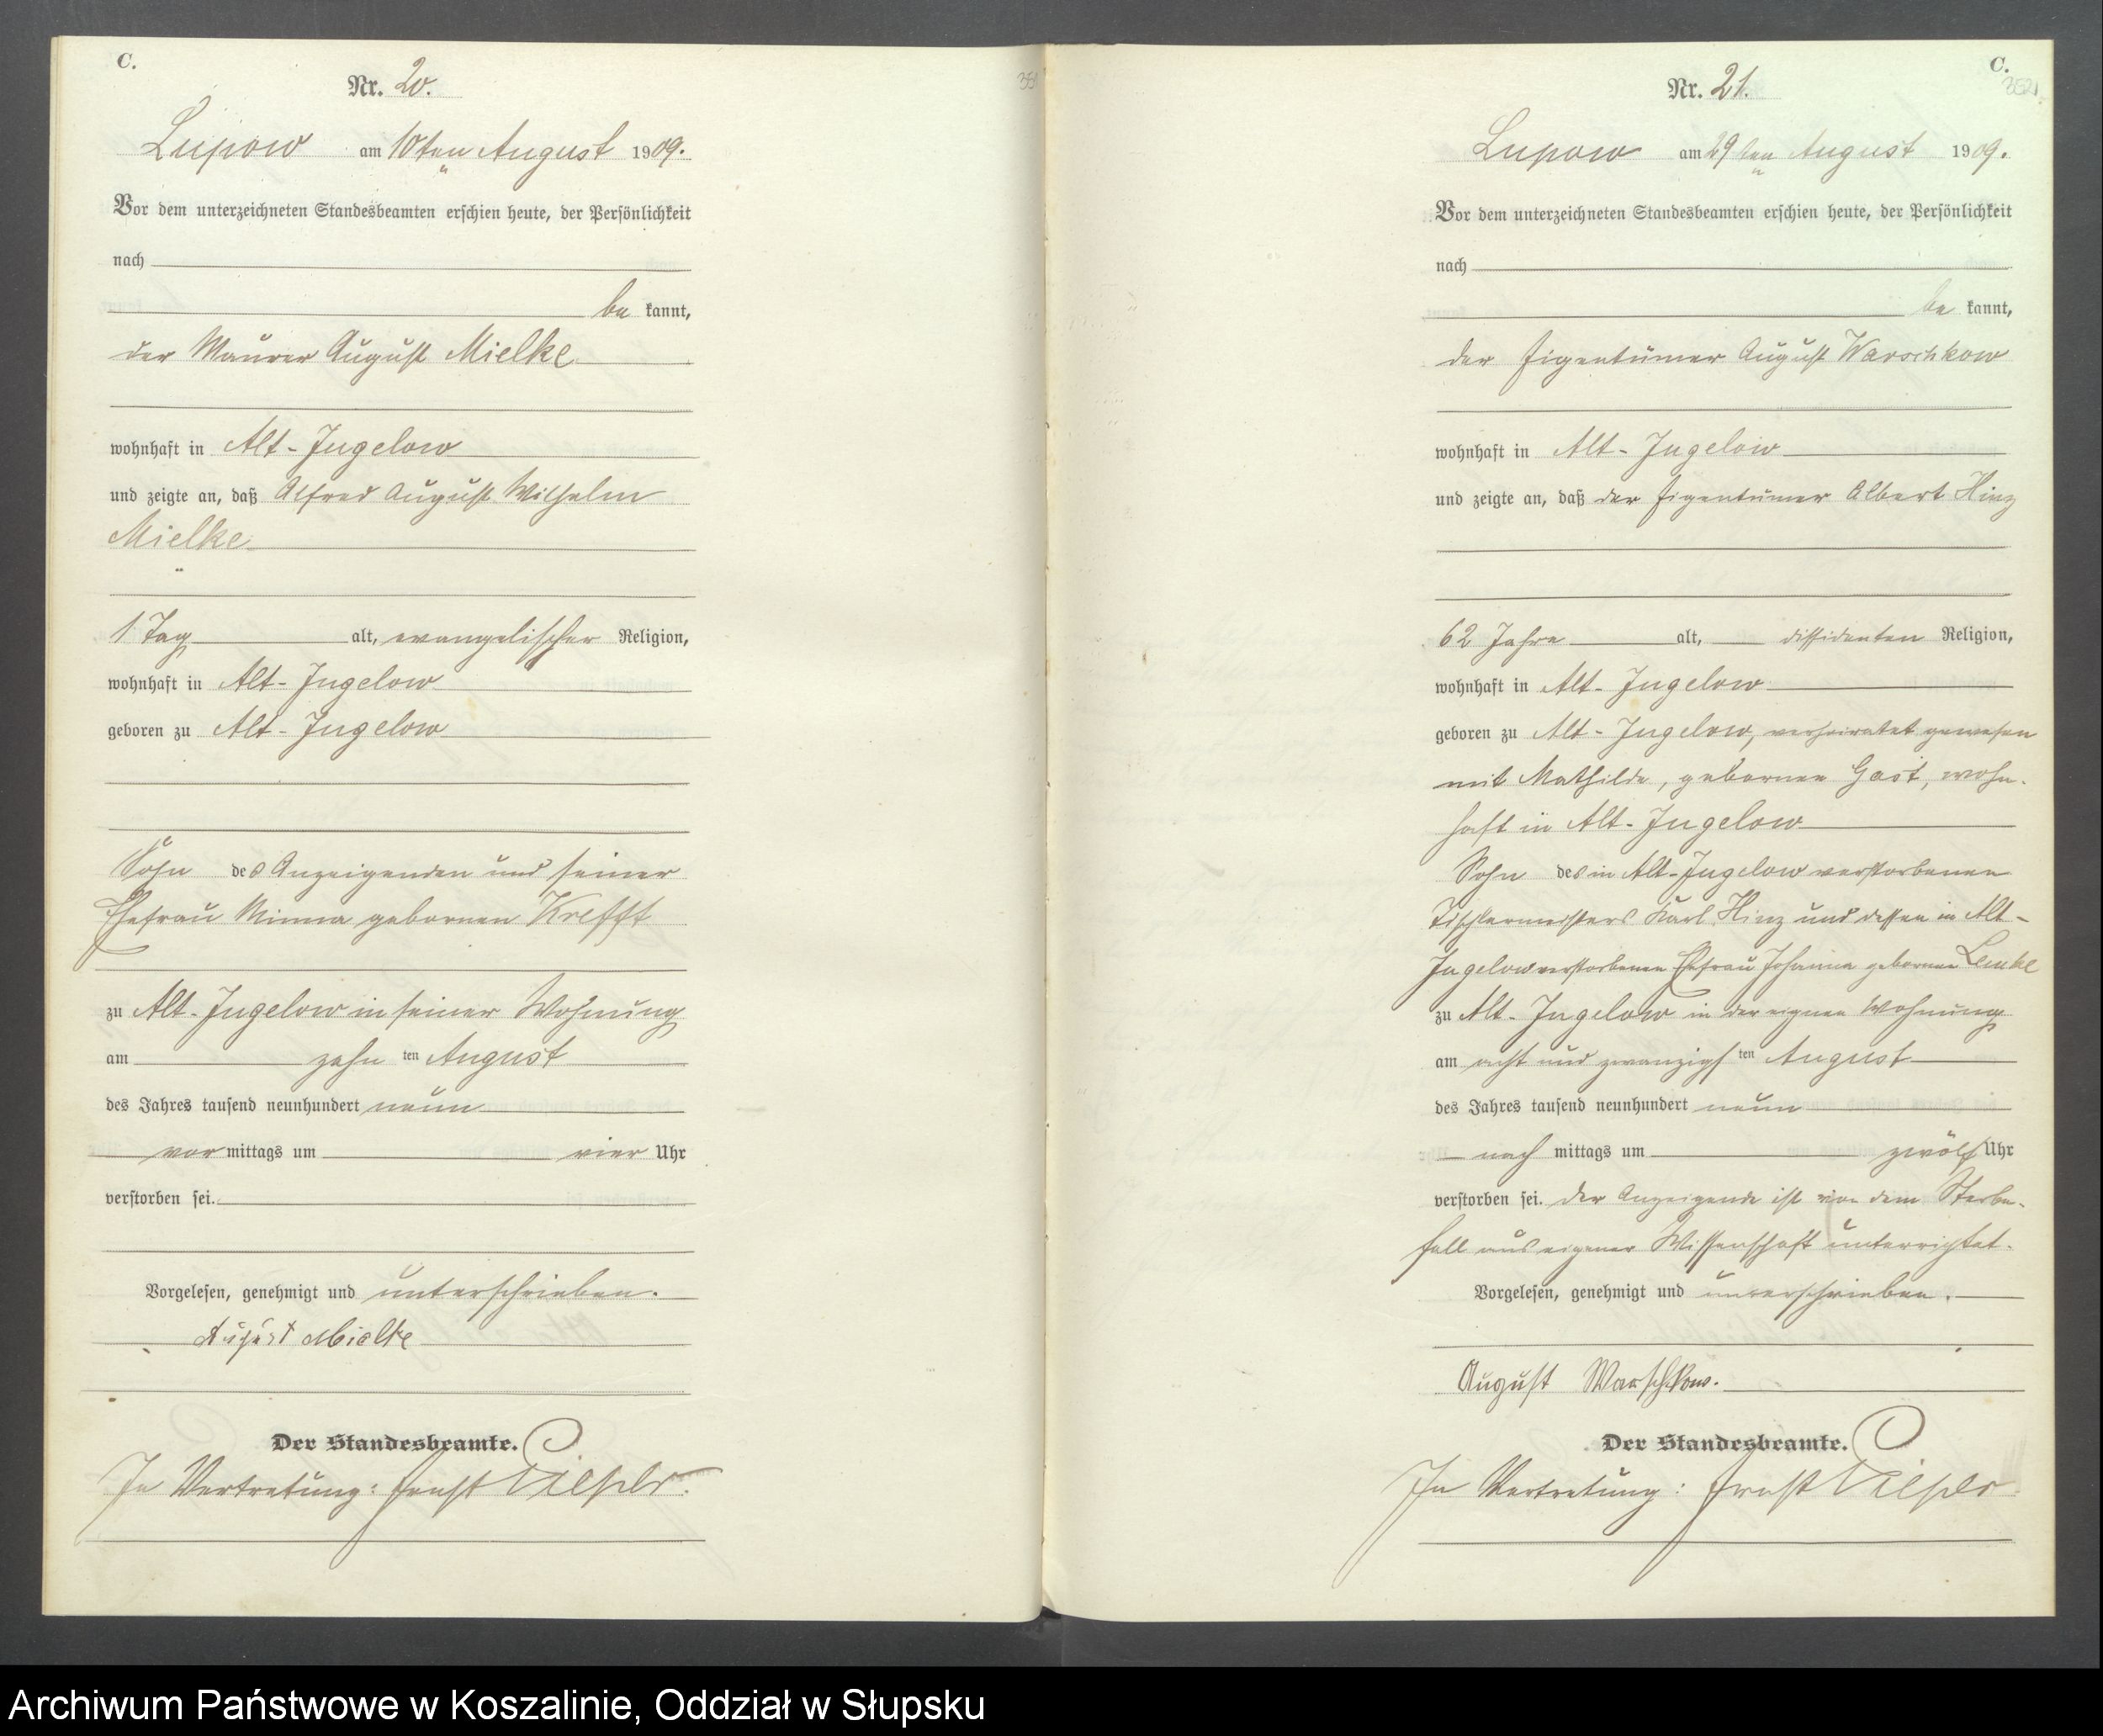 C.
Nr. 20.
Lupow am 10ten August 1909.
Vor dem unterzeichneten Standesbeamten erschien heute, der Persönlichkeit
nach
be kannt,
der Maurer August Mielke
wohnhaft in Alt-Jugelow
und zeigte an, daß Alfred August Wilhelm
Mielke
1 Tag alt, evangelischer Religion,
wohnhaft in Alt-Jugelow
geboren zu Alt-Jugelow
Sohn des Anzeigenden und seiner
Ehefrau Minna gebornen Krefft
zu Alt-Jugelow in seiner Wohnung
am zehn ten August
des Jahres tausend neunhundert neun
vor mittags um vier Uhr
verstorben sei.
Vorgelesen, genehmigt und unterschrieben.
August Mielke
Der Standesbeamte.
In Vertretung: Ernst
C.
Nr. 21.
Lupow am 29ten August 1909.
Vor dem unterzeichneten Standesbeamten erschien heute, der Persönlichkeit
nach
be kannt,
der Eigentümer August Warschkow
wohnhaft in Alt-Jugelow
und zeigte an, daß der Eigentümer Albert Hinz
62 Jahre alt, dissidenten Religion,
wohnhaft in Alt-Jugelow
geboren zu Alt-Jugelow, verheiratet gewesen
mit Mathilde, gebornen Gast, wohn-
haft in Alt-Jugelow
Sohn des in Alt-Jugelow verstorbenen
Tischlermeisters Karl Hinz und dessen in Alt-
Jugelow verstorbenen Ehefrau Johanna gebornen Lemke
zu Alt-Jugelow in der eignen Wohnung
am acht und zwanzigs ten August
des Jahres tausend neunhundert neun
nach mittags um zwölf Uhr
verstorben sei. Der Anzeigende ist von dem Sterbe-
fall aus eigener Wissenschaft unterrichtet.
Vorgelesen, genehmigt und unterschrieben.
August Warschkow.
Der Standesbeamte.
In Vertretung: Ernst
Archiwum Państwowe w Koszalinie, Oddział w Słupsku